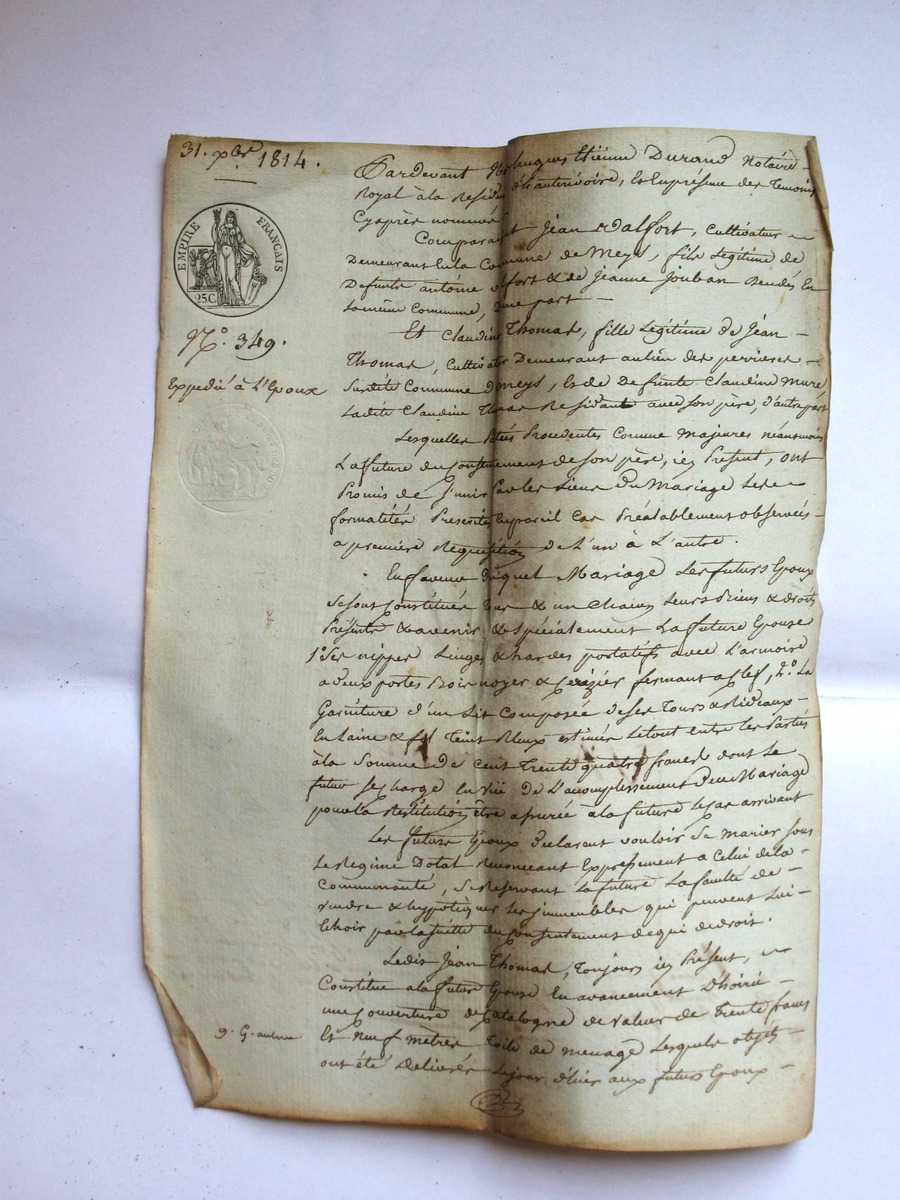 31. xbre 1814.
EMPIRE FRANÇAIS
25C.
N.° 349.
Expedié à L'Epoux
Pardevant Me Jacques Etienne Durand Notaire
Royal à la Residence et Enpresence des Temoins
Cyaprès nommés
Comparait Jean Dalfort, Cultivateur
Demeurant En la Commune de Meys, fils Legitime de
Defunts antoine & de Jeanne Jouban Decedés En
La même Commune, D'une part
Et Claudine Thomas, fille Legitime de Jean
Thomas, Cultivateur Demeurant au Lieu des perrieres
Susdite Commune de Meys, & de Defunte Claudine Mure
Ladite Claudine Thomas Residant avec son père, d'autre part
Lesquelles Parties Procedentes Comme Majeures néantmoins
La future du Consentement de son père, icy Present, ont
Promis de S'unir Par les Liens Du Mariage Les
formalités Prescrites En pareil Cas Préalablement observeés
a première Requisition de L'un à L'autre.
En faveur Duquel Mariage Les futurs Epoux
Se sont Constitués Tous & un Chacun Leurs Biens & droits
Présents & avenir & Spécialement La future Epouse
1° Ses nippes Linges & hardes portatifs avec L'armoire
a deux portes Bois noyer & Cerizier fermant a Clef, 2.° La
Garniture d'un Lit Composée de Ses Tours & Rideaux
En Laine & fil Teint Bleux estimés Letout entre Les Parties
à la Somme De Cent Trente quatre francs dont Le
futur Se charge de L'acomplissement Du Mariage
pour La Restitution être assurée à la future Le Cas arrivant
Les futurs Epoux Declarent vouloir Se Marier Sous
Le Regime Dotal Renonceant Expressement a Celui de la
Communauté, Se Reservant La future La faulté de
vendre & hypotequer Les immeubles qui peuvent Lui
Echoir par La Suitte du Consentement de qui de droit.
Ledit Jean Thomas, Toujours icy Présent,
Constitue a la future Epouse En avancement D'hoirie
une Couverture de Catalogne de valeur de Trente francs
Et neuf mètres Toile de menage Lesquels objets
ont été Delivrés Lejour d'hier aux futurs Epoux